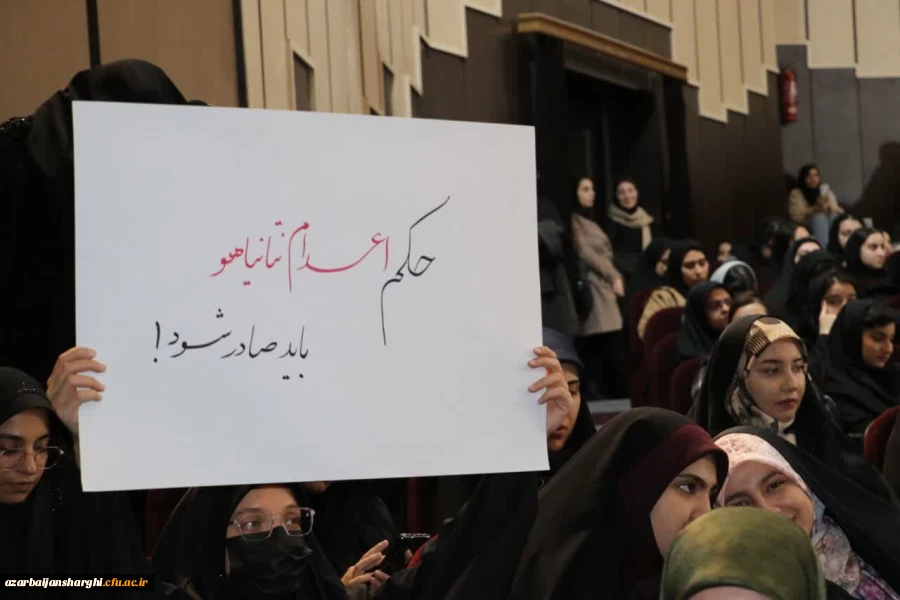 حکم اعدام نتانیاهو
باید صادر شود!
azarbaijansharghi.cfu.ac.ir